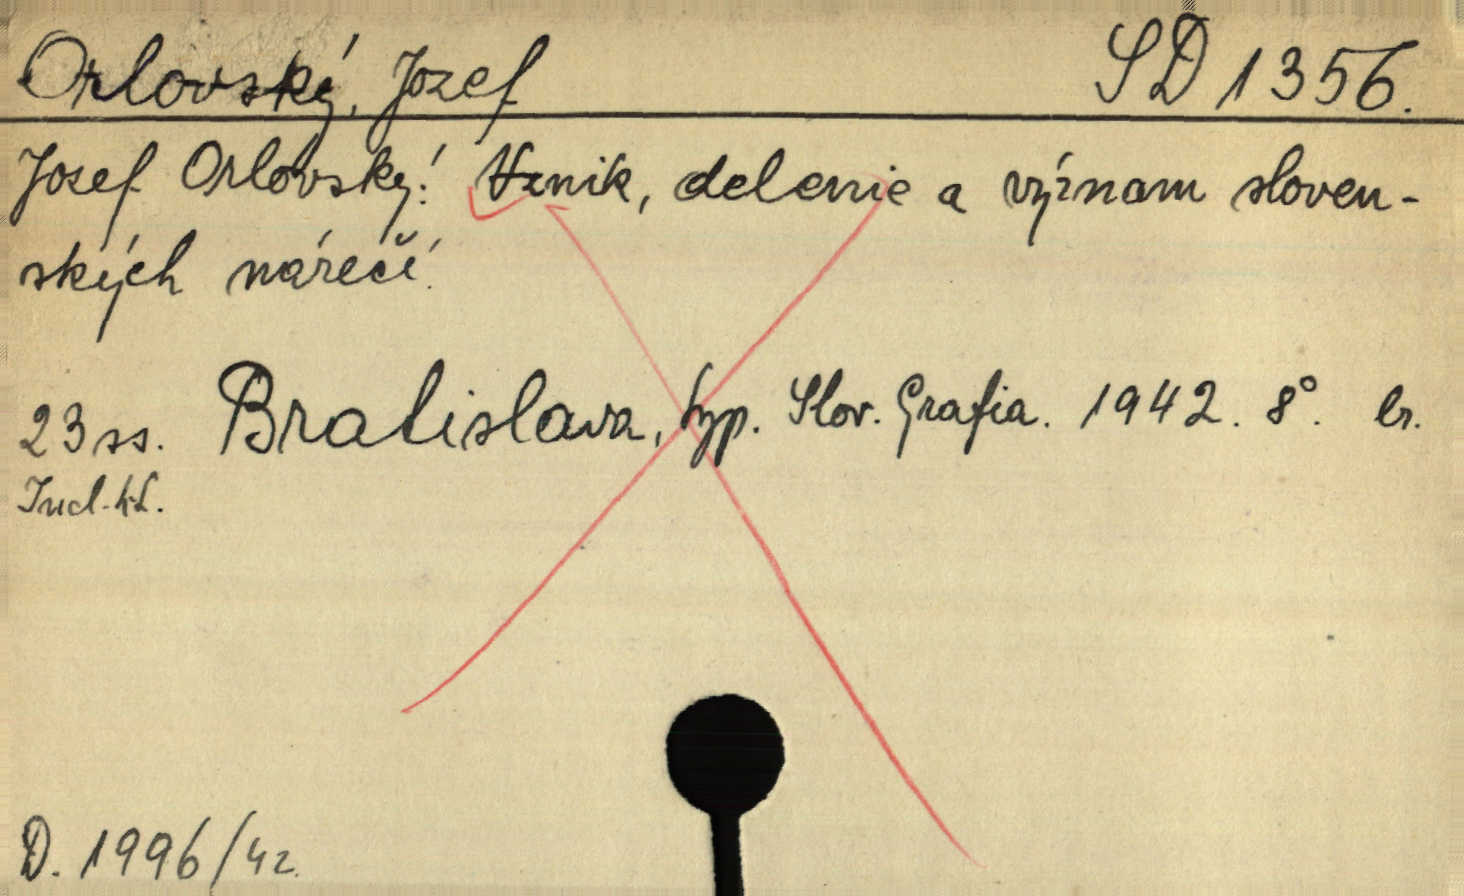 Orlovský, Jozef SD 1356.
Josef Orlovský: Vznik, delenie a význam sloven-
ských nárečí.
23 ss. Bratislava, typ. Slov. Grafia. 1942. 8°. br.
D. 1996/42.